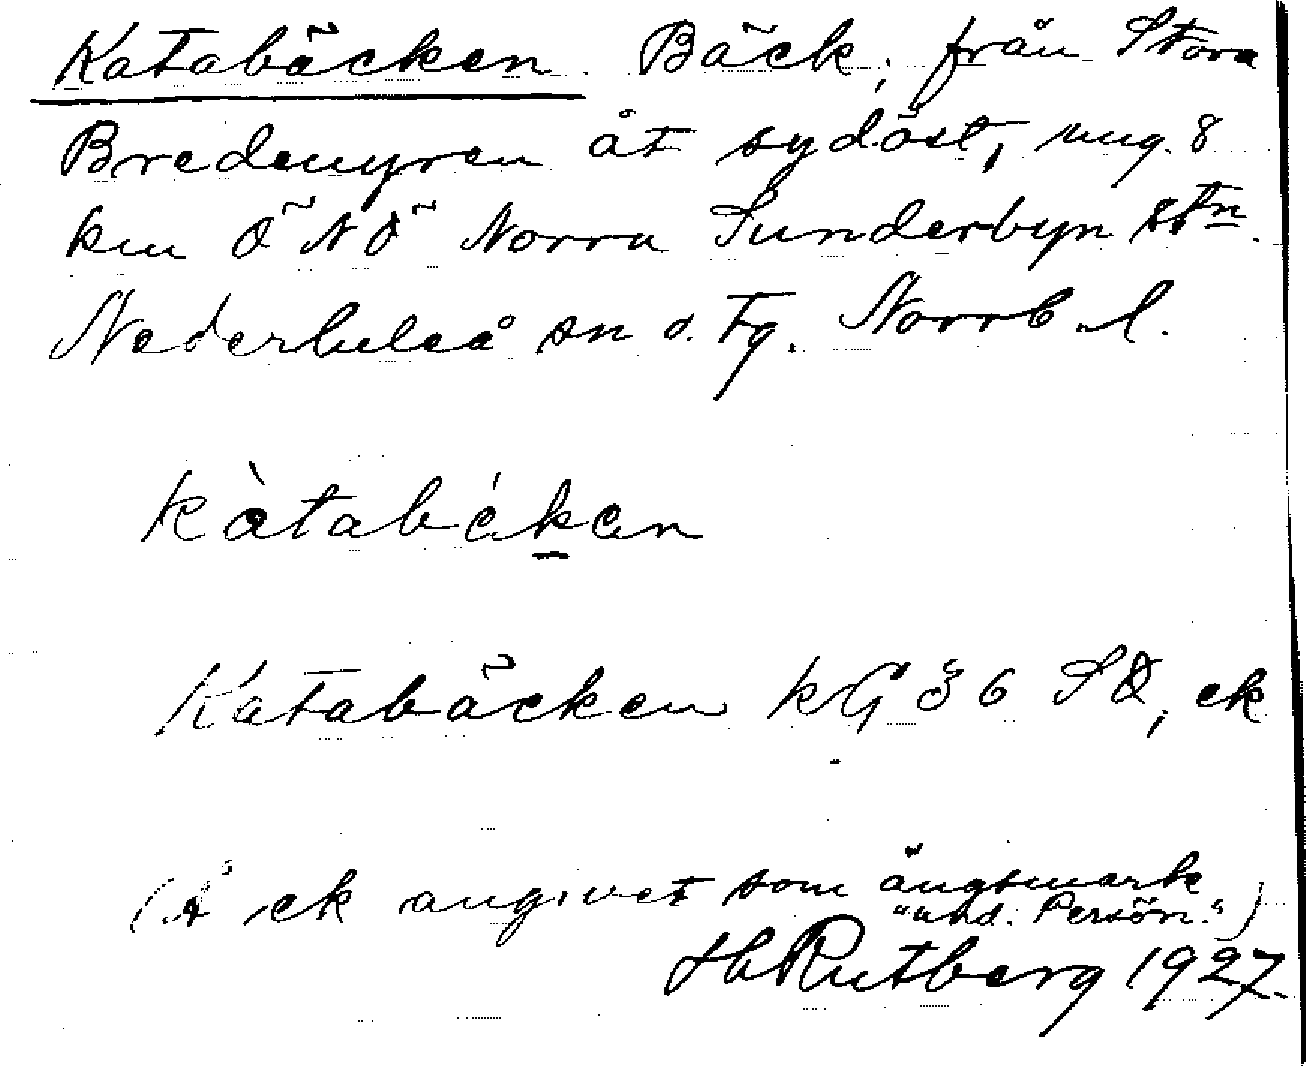 Katabäcken Bäck, från Stora
Bredmyren åt sydöst, ung. 8
km ÖNÖ Norra Sunderbyn stn.
Nederluleå sn o. tg. Norrb. l.
kàtabékan
Katabäcken kG 36 SO, ek
(Å ek angivet som ängsmark
"und. Persön.")
H Rutberg 1927